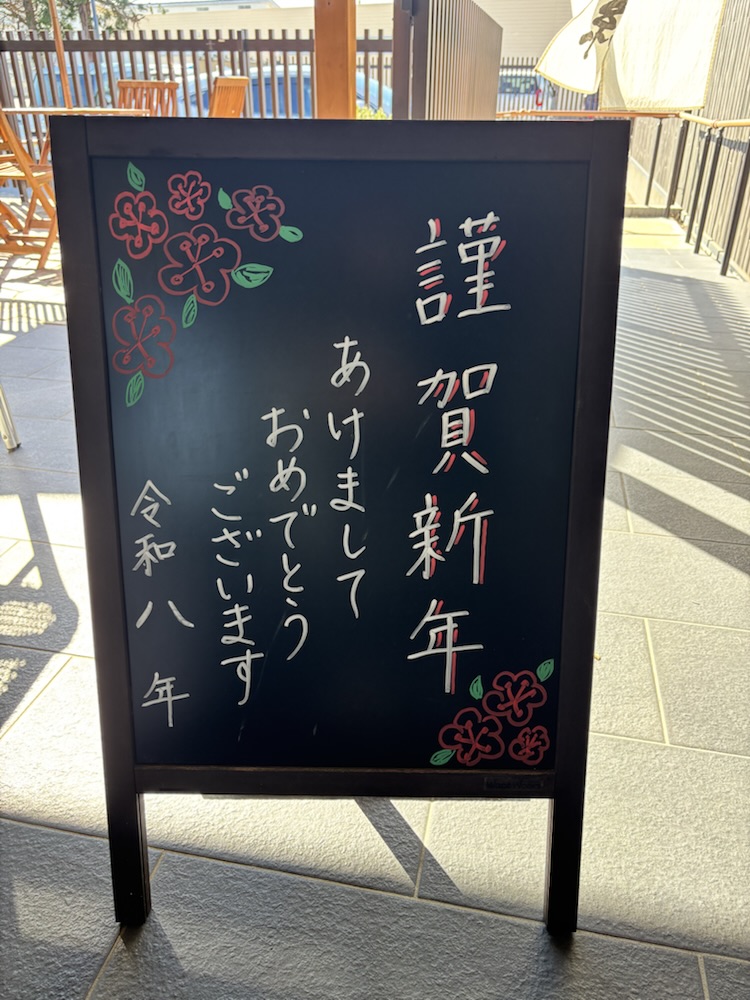 謹賀新年
あけまして
おめでとう
ございます
令和八年